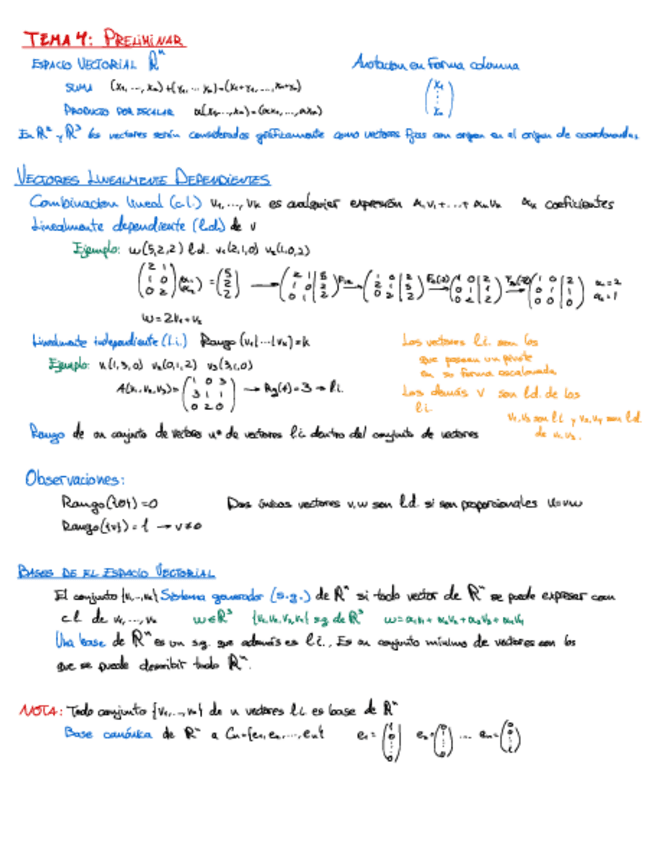 TEMA 4: PRELIMINAR
ESPACIO VECTORIAL Rⁿ
Anotacion en forma columna
SUMA (x₁, ..., xₙ)+(y₁, ... yₙ)=(x₁+y₁, ..., xₙ+yₙ)
(x₁ ⋮ xₙ)
PRODUCTO POR ESCALAR α(x₁, ..., xₙ)=(αx₁, ..., αxₙ)
En R² y R³ los vectores serán considerados gráficamente como vectores fijos con origen en el origen de coordenadas
VECTORES LINEALMENTE DEPENDIENTES
Combinacion lineal (c.l.) v₁, ..., vₖ es cualquier expresión α₁v₁+...+αₖvₖ αₖ coeficientes
Linealmente dependiente (l.d.) de v
Ejemplo: w(5,2,2) l.d. v₁(2,1,0) v₂(1,0,2)
(2 1 / 1 0 / 0 2)(α₁ / α₂) = (5 / 2 / 2) → (2 1 | 5 / 1 0 | 2 / 0 1 | 2) → (1 0 | 2 / 2 1 | 5 / 0 2 | 2) → (1 0 | 2 / 0 1 | 1 / 0 2 | 2) → (1 0 | 2 / 0 1 | 1 / 0 0 | 0) α₁=2 α₂=1
w=2v₁+v₂
Linealmente independiente (l.i.) Rango (v₁|...|vₖ)=k
Ejemplo: v₁(1,3,0) v₂(0,1,2) v₃(3,1,0)
A(v₁,v₂,v₃)=(1 0 3 / 3 1 1 / 0 2 0) → Rg(A)=3 → l.i.
Los vectores l.i. son los
que poseen un pivote
en su forma escalonada
Los demás v son l.d. de los
l.i.
Rango de un conjunto de vectores nº de vectores l.i. dentro del conjunto de vectores
Observaciones:
Rango({0})=0 Dos únicos vectores v, w son l.d. si son proporcionales
Rango({v})=1 → v≠0
BASES DE EL ESPACIO VECTORIAL
El conjunto {v₁,...,vₖ} Sistema generador (s.g.) de Rⁿ si todo vector de Rⁿ se puede expresar com
c.l. de v₁, ..., vₖ w∈R³ {v₁,v₂,v₃,v₄} s.g. de R³ w=α₁v₁+α₂v₂+α₃v₃+α₄v₄
Una base de Rⁿ es un s.g. que además es l.i., Es un conjunto mínimo de vectores con los
que se puede describir todo Rⁿ.
NOTA: Todo conjunto {v₁, ..., vₙ} de n vectores l.i. es base de Rⁿ
Base canónica de Rⁿ a Cₙ={e₁, e₂, ..., eₙ} e₁=(1 0 ⋮ 0) e₂=(0 1 ⋮ 0) ... eₙ=(0 0 ⋮ 1)